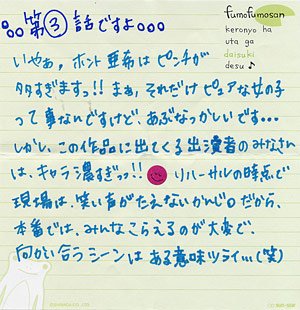 第③話ですよ○○○
fumofumosan
keronyo ha
uta ga
daisuki
desu ♪
いやぁ、ホント亜希はピンチが
多すぎますっ!! まぁ、それだけピュアな女の子
って事なんですけど、あぶなっかしいです…
しかし、この作品に出てくる出演者のみなさん
は、キャラ濃すぎっ!! リハーサルの時点で
現場は、笑い声がたえないかんじ。だから、
本番では、みんなこらえるのが大変で、
向かい合うシーンは ある意味ツライ…(笑)